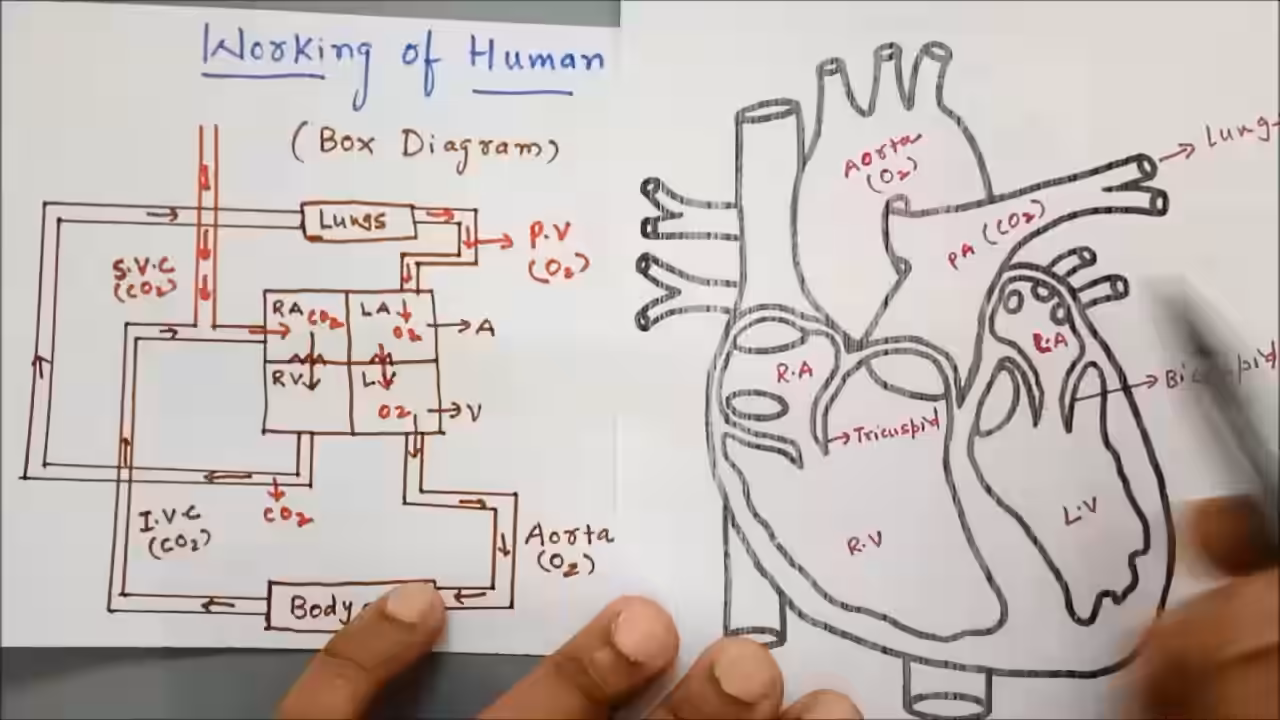 Working of Human
(Box Diagram)
Lungs
P.V
(O2)
S.V.C
(CO2)
RA
CO2
LA
O2
A
RV
O2
V
CO2
I.V.C
(CO2)
Aorta
(O2)
Body
Aorta
(O2)
PA (CO2)
R.A
Tricuspid
R.V
L.V